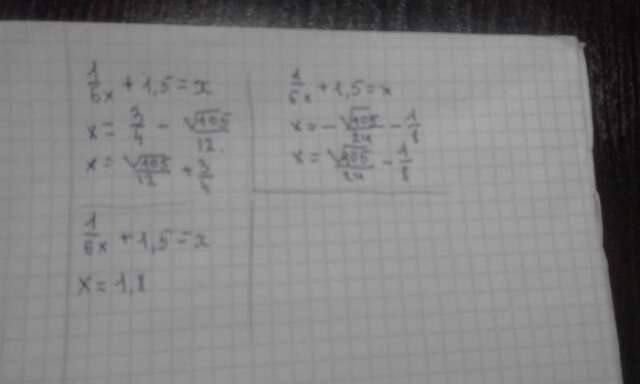 1/6x + 1,5 = x
x = 3/4 - √105/12
x = √105/12 + 3/4
1/6x + 1,5 = x
x = 1,8
1/6x + 1,5 = x
x = - √105/24 - 1/8
x = √105/24 - 1/8